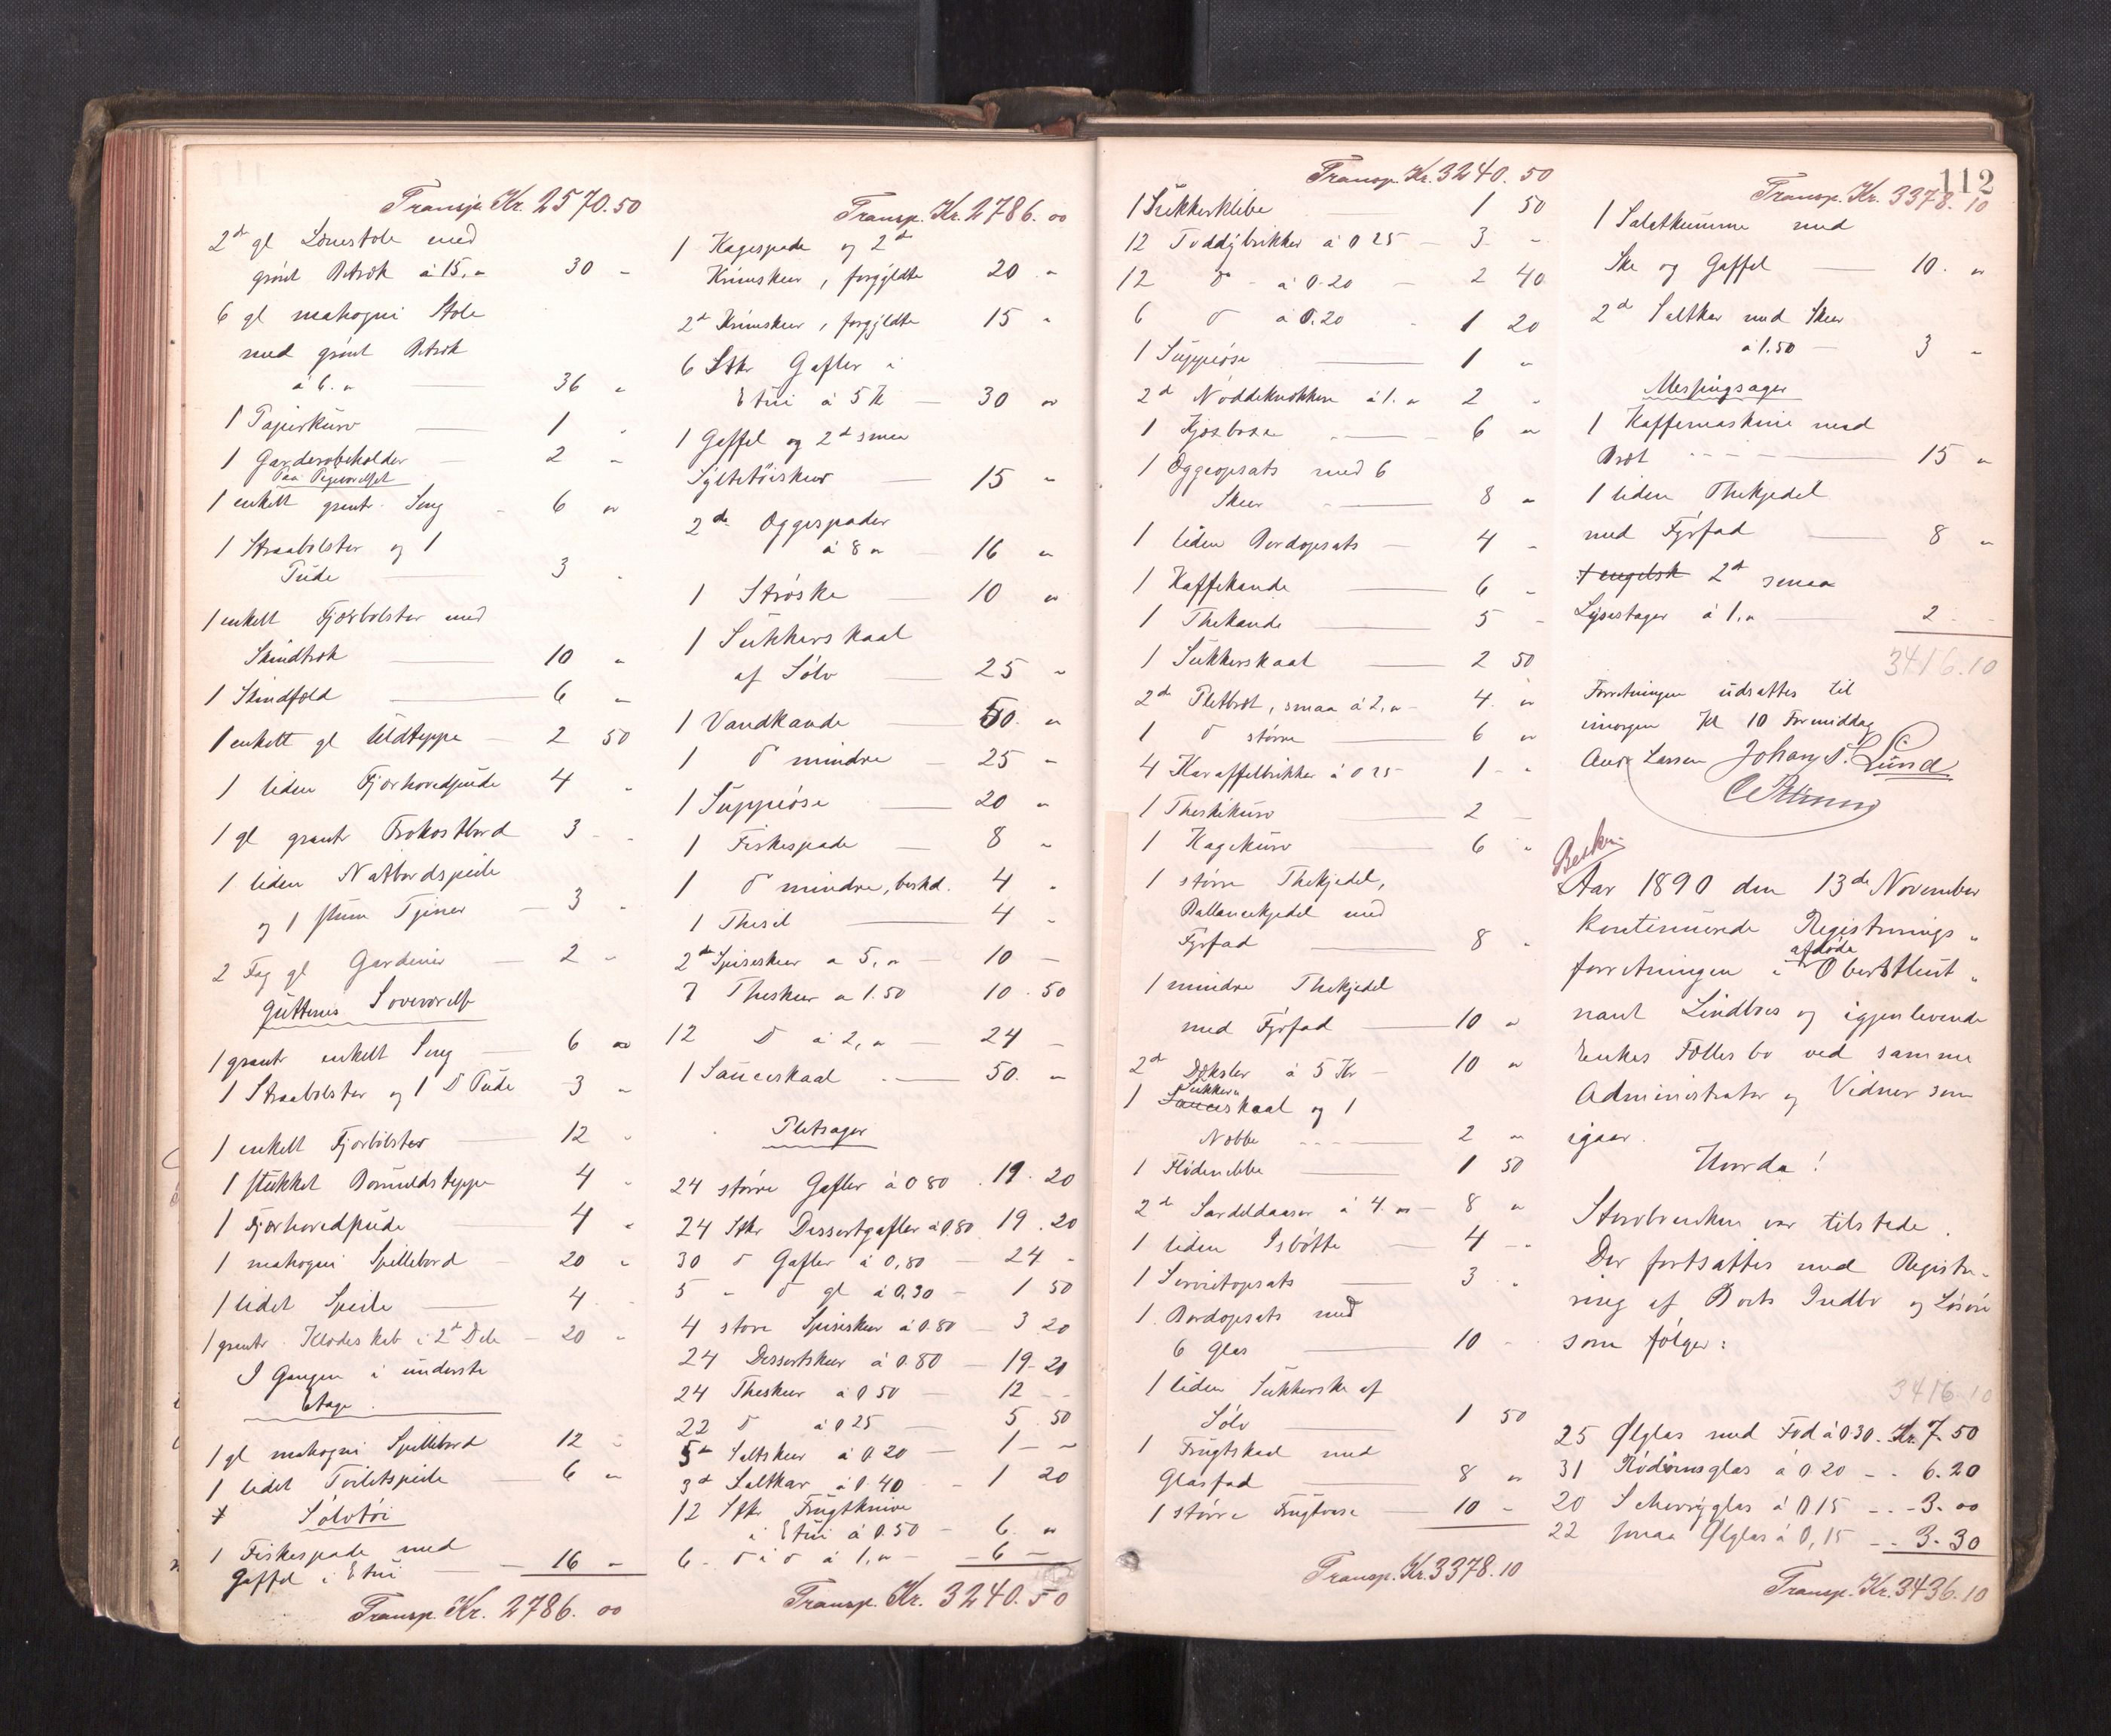 Transp. Kr. 2570.50
2de gl Lænestole med
grønt Betræk à 15,„ 30 „
6 gl mahogni Stole
med grønt Betræk
à 6.„ — 36 „
1 Papirkurv — 1 „
1 Garderobeholder — 2 „
Paa Pigeværelset
1 enkelt grantr. Seng - 6 „
1 Straabolster og 1
Pude — 3 „
1 enkelt Fjærbolster med
Skindtræk — 10 „
1 Skindfæld — 6 „
1 enkelt gl Uldteppe - 2 50
1 liden Fjærhovedpude 4 „
1 gl grantr Frokostbord 3 - „
1 liden Natbordspeile
og 1 stum Tjener — 3 „
2 Fag gl Gardiner — 2 „
Gutternes Soveværelse
1 grantr enkelt Seng — 6 „
1 Straabolster og 1 D Pude - 3 „
1 enkelt Fjærbolster — 12 „
1 stukket Bomuldsteppe 4 „
1 Fjærhovedpude — 4 „
1 mahogni Spillebord - 20 „
1 lidet Speile — 4 „
1 grantr. Klædeskab i 2de Dele - 20 „
I Gangen i underste
Etage.
1 gl mahogni Spillebord 12 „
1 lidet Toiletspeile - 6 „
Sølvtøi
1 Fiskespade med
Gaffel i Etui — 16 „
Transp. Kr. 2786. 00
Transp. Kr. 2786. 00
1 Kagespade og 2de
Krumskeer, forgyldte 20 „
2de Krumskeer, forgyldte 15 „
6 Stkr Gafler i
Etui à 5 Kr — 30 „
1 Gaffel og 2de smaa
Syltetøiskeer — 15 „
2de Æggespader
à 8 „ — 16 „
1 Strøske — 10 „
1 Sukkerskaal
af Sølv — 25 „
1 Vandkande — 50. „
1 D mindre — 25 „
1 Suppeøse — 20 „
1 Fiskespade — 8 „
1 D mindre, beskd. 4 „
1 Thesil — 4 „
2de Spiseskeer a 5,„ — 10 —
7 Theskeer a 1.50 10 . 50
12 D à 2,„ — 24 —
1 Sauceskaal — 50. „
Pletsager
24 større Gafler à 0 80 . 19 . 20
24 Stkr Dessertgafler à 0.80 19 . 20
30 D Gafler à 0,80 — 24 -
5 „ D gl à 0.30 - 1 50
4 store Spiseskeer à 0.80 — 3 20
24 Dessertskeer à 0.80 — 19 - 20
24 Theskeer à 0 50 — 12 - -
22 D à 0 25 — 5 . 50
5de Saltskeer à 0 20 — 1 — „
3de Saltkar à 0.40 - 1 20
12 Stkr Frugtknive
i Etui à 0.50 - 6. „
6 - D i D à 1,„ — 6 —
Transp. Kr. 3240. 50
Transp. Kr. 3240. 50
1 Sukkerklibe 1 50
12 Toddybrikker à 0 25 - 3. -
12 D - à 0.20 — 2 40
6 D à 0.20 - 1 20
1 Suppeøse — 1 „
2de Nøddeknækkere à 1.„ 2 „
1 Kjæxbosse — 6 „
1 Æggeopsats med 6
Skeer — 8 „
1 liden Bordopsats — 4 „
1 Kaffekande — 6 „
1 Thekande — 5 -
1 Sukkerskaal — 2 50
2de Pletbræt, smaa à 2,„ - 4. „
1 D større — 6 „
4 Karaffelbrikker à 0 25 1 - „
1 Theskekurv — 2 —
1 Kagekurv — 6 „
1 større Thekjedel,
Ballancekjedel med
Fyrfad — 8 „
1 mindre Thekjedel
med Fyrfad — 10 „
2de Dæksler à 5 Kr - 10 „
Sukker„
1 Sauceskaal og 1
Nebbe — 2 „
1 Flødenebbe — 1 50
2de Sardeldaaser à 4.„ - 8 „
1 liden Isbøtte — 4 - „
1 Servietopsats — 3 . „
1 Bordopsats med
6 Glas — 10 -
1 liden Sukkerske af
Sølv — 1 50
1 Frugtskaal med
Glasfad — 8 „
1 større Frugtvase — 10 -
Transp. Kr. 3378.10
112
Transp. Kr. 3378. 10
1 Salatkumme med
Ske og Gaffel — 10. „
2de Saltkar med Skeer
à 1.50 — 3 „
Messingsager
1 Kaffemaskine med
Bræt — 15 „
1 liden Thekjedel
med Fyrfad — 8 „
1 engelsk 2de smaa
Lysestager à 1,„ — 2 - -
3416.10
Forretningen udsattes til
imorgen Kl 10 Formiddag
Johan S. Lund
Aar 1890 den 13de November
kontinuerede Registrerings„
afdøde
forretningen i Oberstlieut„
nant Lindboes og igjenlevende
Enkes Fællesbo ved samme
Administrator og Vidner som
igaar.
Hvorda!
Stervboenken var tilstede.
Der fortsattes med Registre-
ring af Boets Indbo og Løsøre
som følger:
3416.10
25 Ølglas med Fod à 0.30 - Kr. 7. 50
31 Rødvinsglas à 0.20 - - 6. 20
20 Scherryglas à 0 15 - - - 3. 00
22 smaa Ølglas à 0,15 - - 3. 30
Transp. Kr. 3436. 10